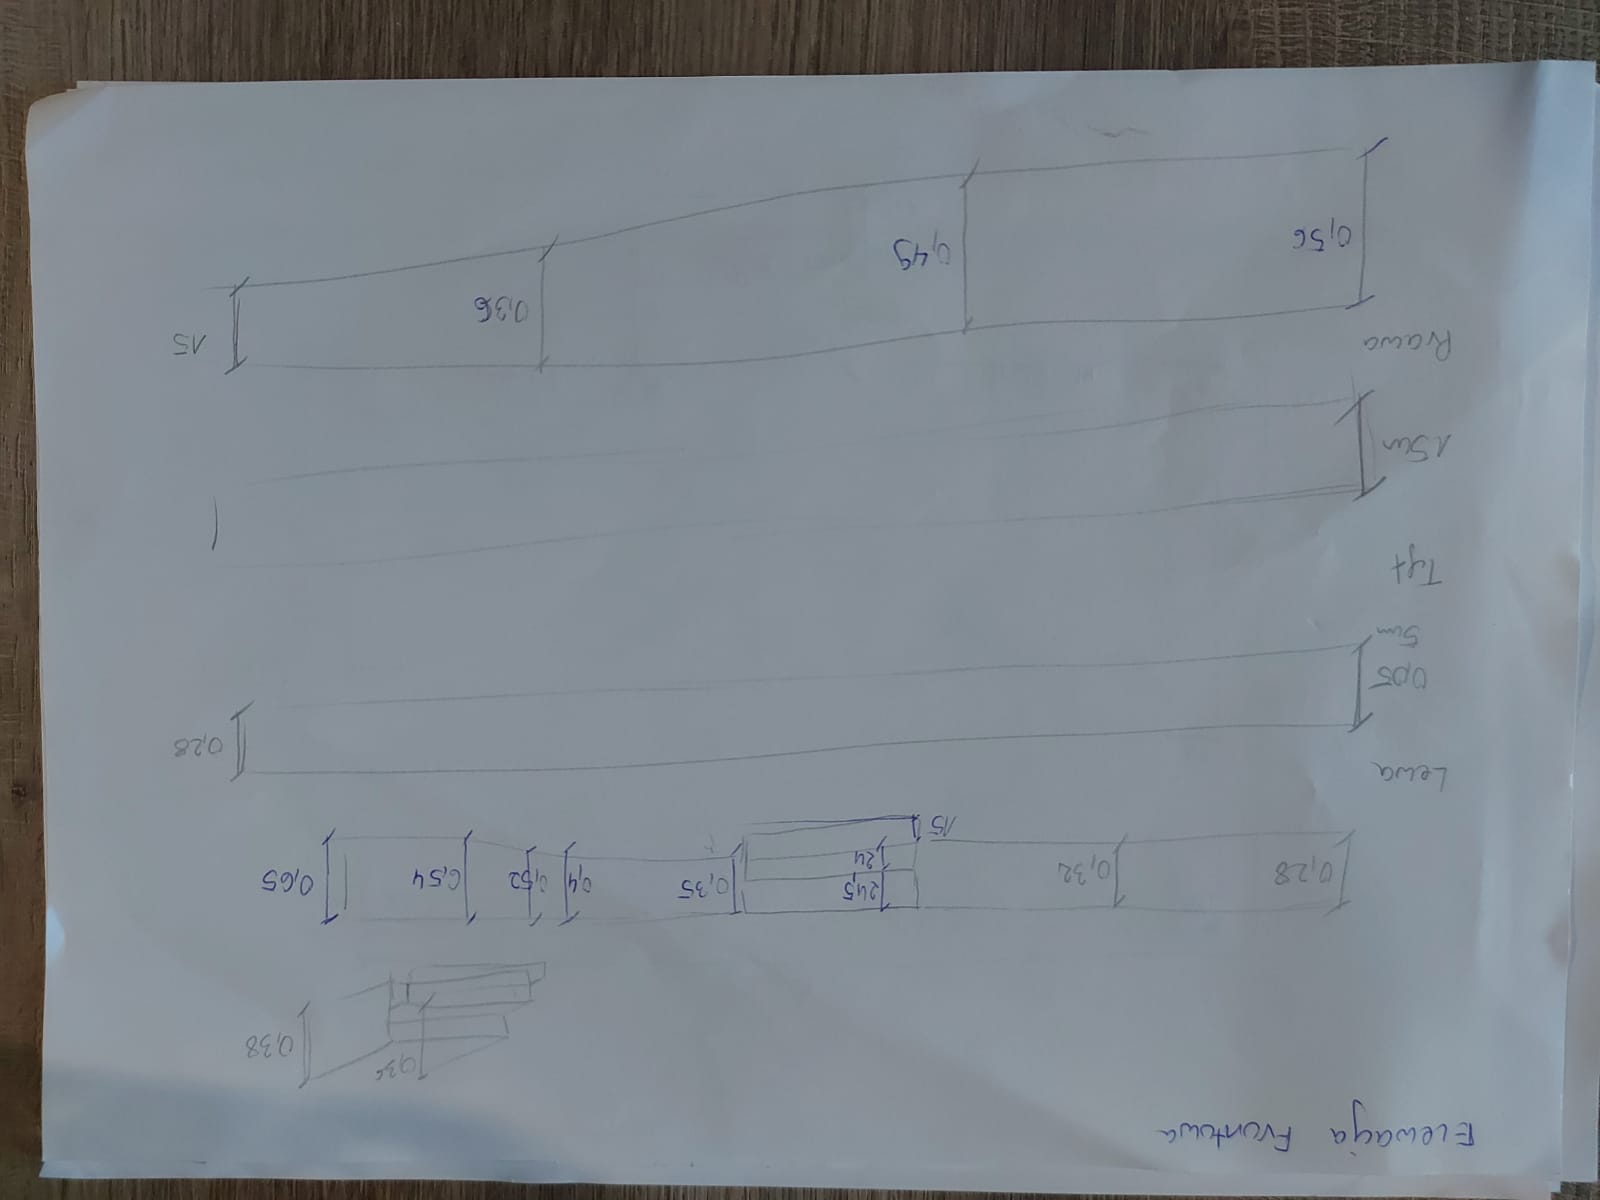 Elewacja Frontowa
0,36
0,38
0,28 0,32 24,5 0,35 0,4 0,52 0,54 0,65
24
15
Lewa
0,28
0,05
5cm
Tył
15cm
Prawa
15
0,36
0,49
0,56